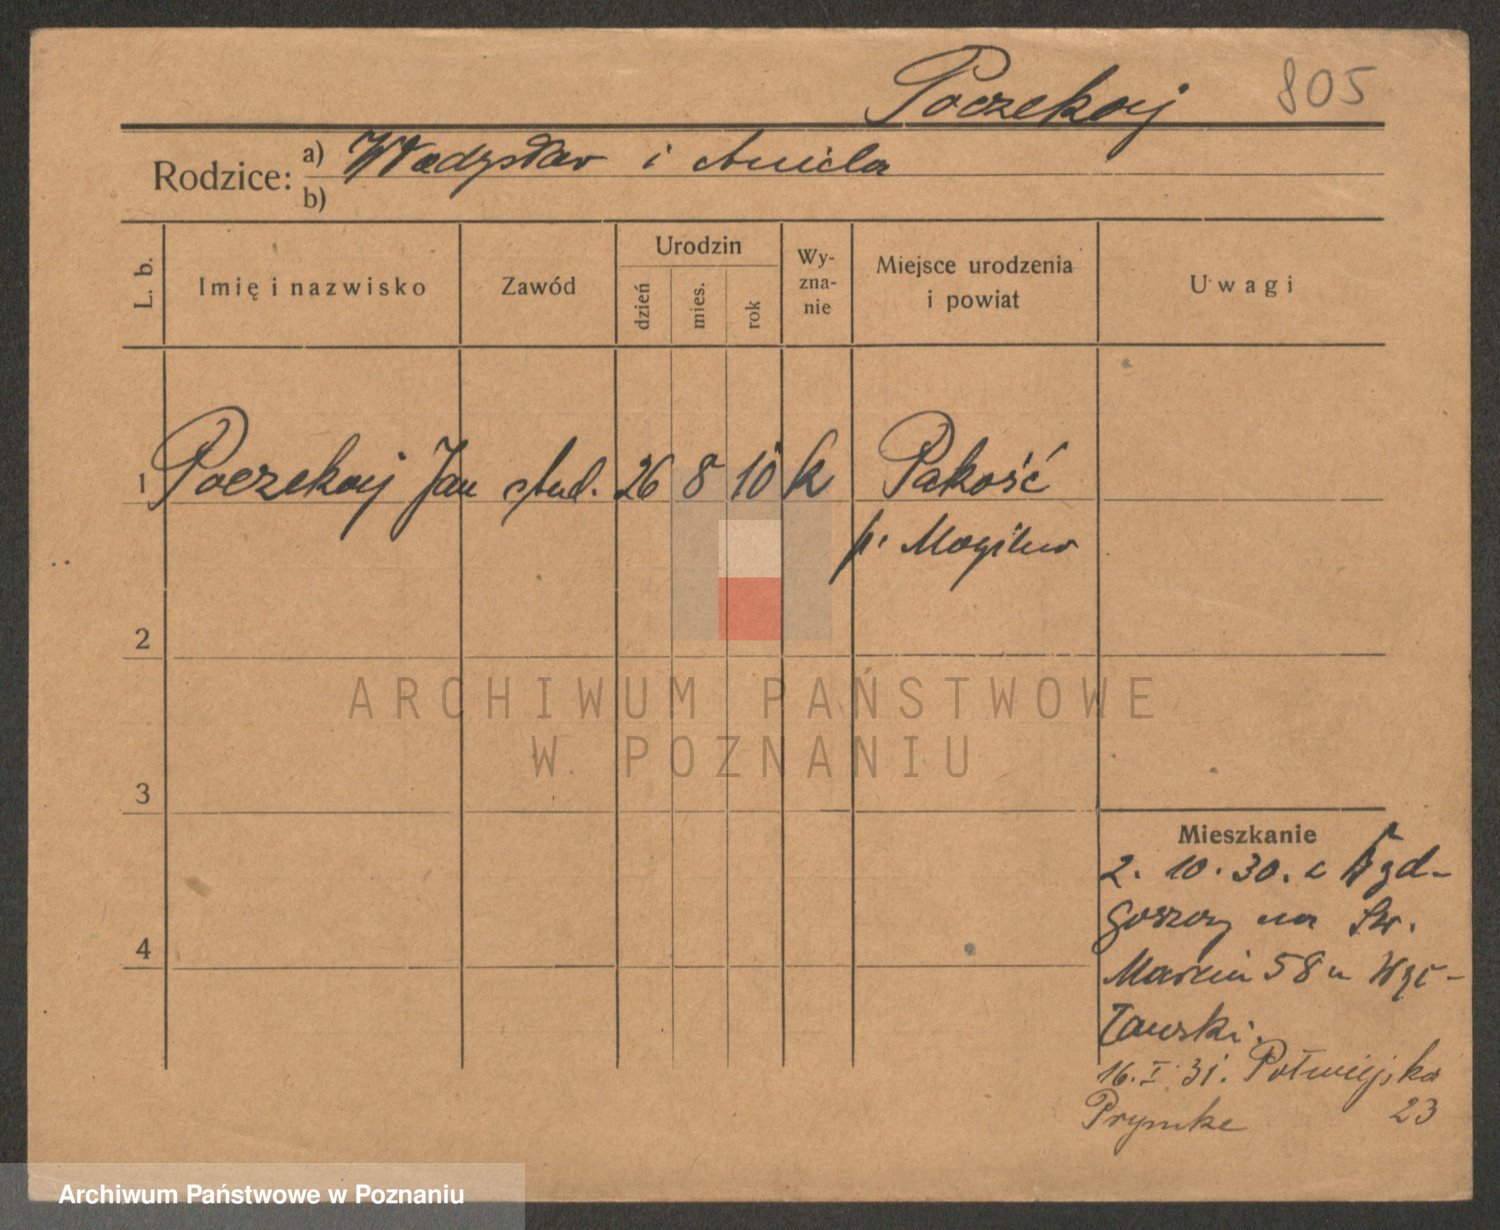 Poczekaj 805
Rodzice: a) Władysław i Aniela
b)
L. b. Imię i nazwisko Zawód Urodzin dzień mies. rok Wy-zna-nie Miejsce urodzenia i powiat Uwagi
1 Poczekaj Jan stud. 26 8 10 k Pakość
p. Mogilno
2
ARCHIWUM PAŃSTWOWE
W POZNANIU
3
Mieszkanie
2. 10. 30. z Byd-
goszczy na Św.
4
Marcin 58 u
16. I. 31. Półwiejska
Prymke 23
Archiwum Państwowe w Poznaniu